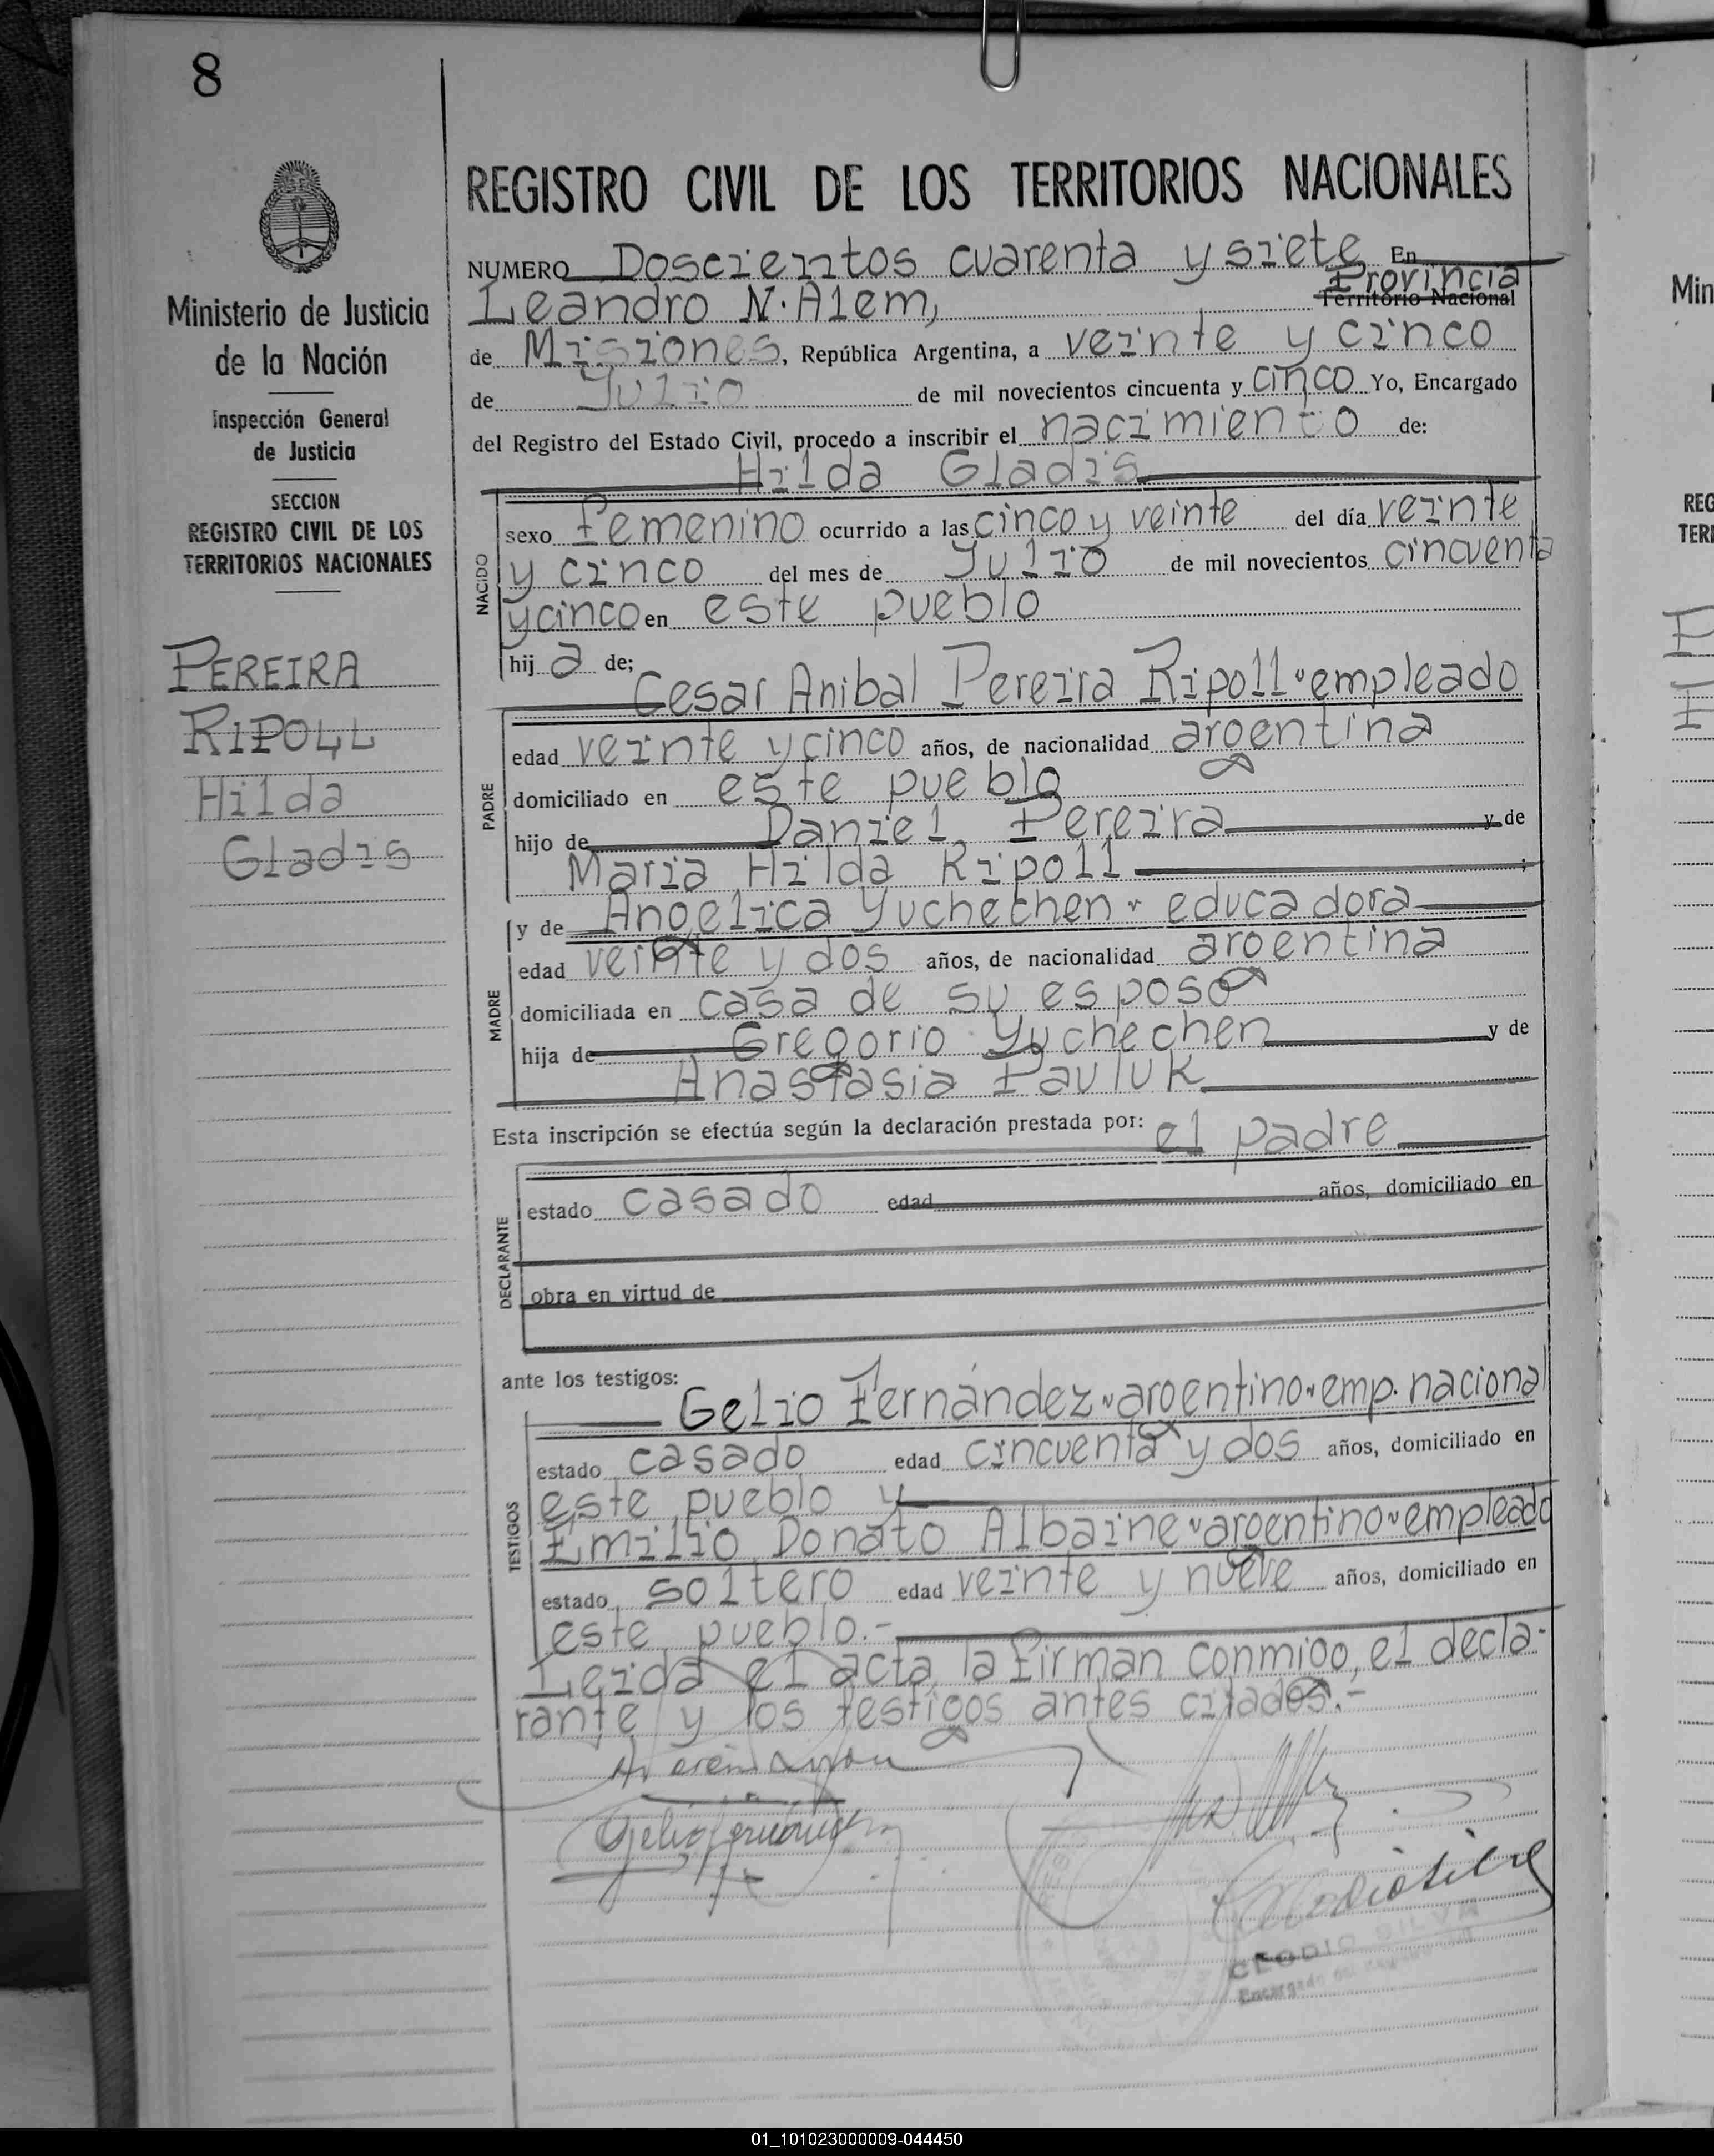 8
REGISTRO CIVIL DE LOS TERRITORIOS NACIONALES
Ministerio de Justicia
de la Nación
Inspección General
de Justicia
SECCION
REGISTRO CIVIL DE LOS
TERRITORIOS NACIONALES
PEREIRA
RIPOLL
Hilda
Gladis
NUMERO Doscientos cuarenta y siete En
Provincia
Leandro N. Alem, Territorio Nacional
de Misiones, República Argentina, a veinte y cinco
de Julio de mil novecientos cincuenta y cinco Yo, Encargado
del Registro del Estado Civil, procedo a inscribir el nacimiento de:
Hilda Gladis
NACIDO
sexo femenino ocurrido a las cinco y veinte del día veinte
y cinco del mes de Julio de mil novecientos cincuenta
y cinco en este pueblo
hij a de;
Cesar Anibal Pereira Ripoll empleado
PADRE
edad veinte y cinco años, de nacionalidad argentina
domiciliado en este pueblo
hijo de Daniel Pereira y de
Maria Hilda Ripoll ;
MADRE
y de Angelica Yuchechen educadora
edad veinte y dos años, de nacionalidad argentina
domiciliada en casa de su esposo
hija de Gregorio Yuchechen y de
Anastasia Pavluk
Esta inscripción se efectúa según la declaración prestada por: el padre
DECLARANTE
estado casado edad años, domiciliado en
obra en virtud de
ante los testigos:
TESTIGOS
Gelio Fernández argentino emp. nacional
estado casado edad cincuenta y dos años, domiciliado en
este pueblo y
Emilio Donato Albaine argentino empleado
estado soltero edad veinte y nueve años, domiciliado en
este pueblo.-
Leida el acta, la firman conmigo, el decla-
rante y los testigos antes citados.-
Gelio Fernández
Clodio Silva
CLODIO SILVA
Encargado del
Min
REG
TER
01_101023000009-044450